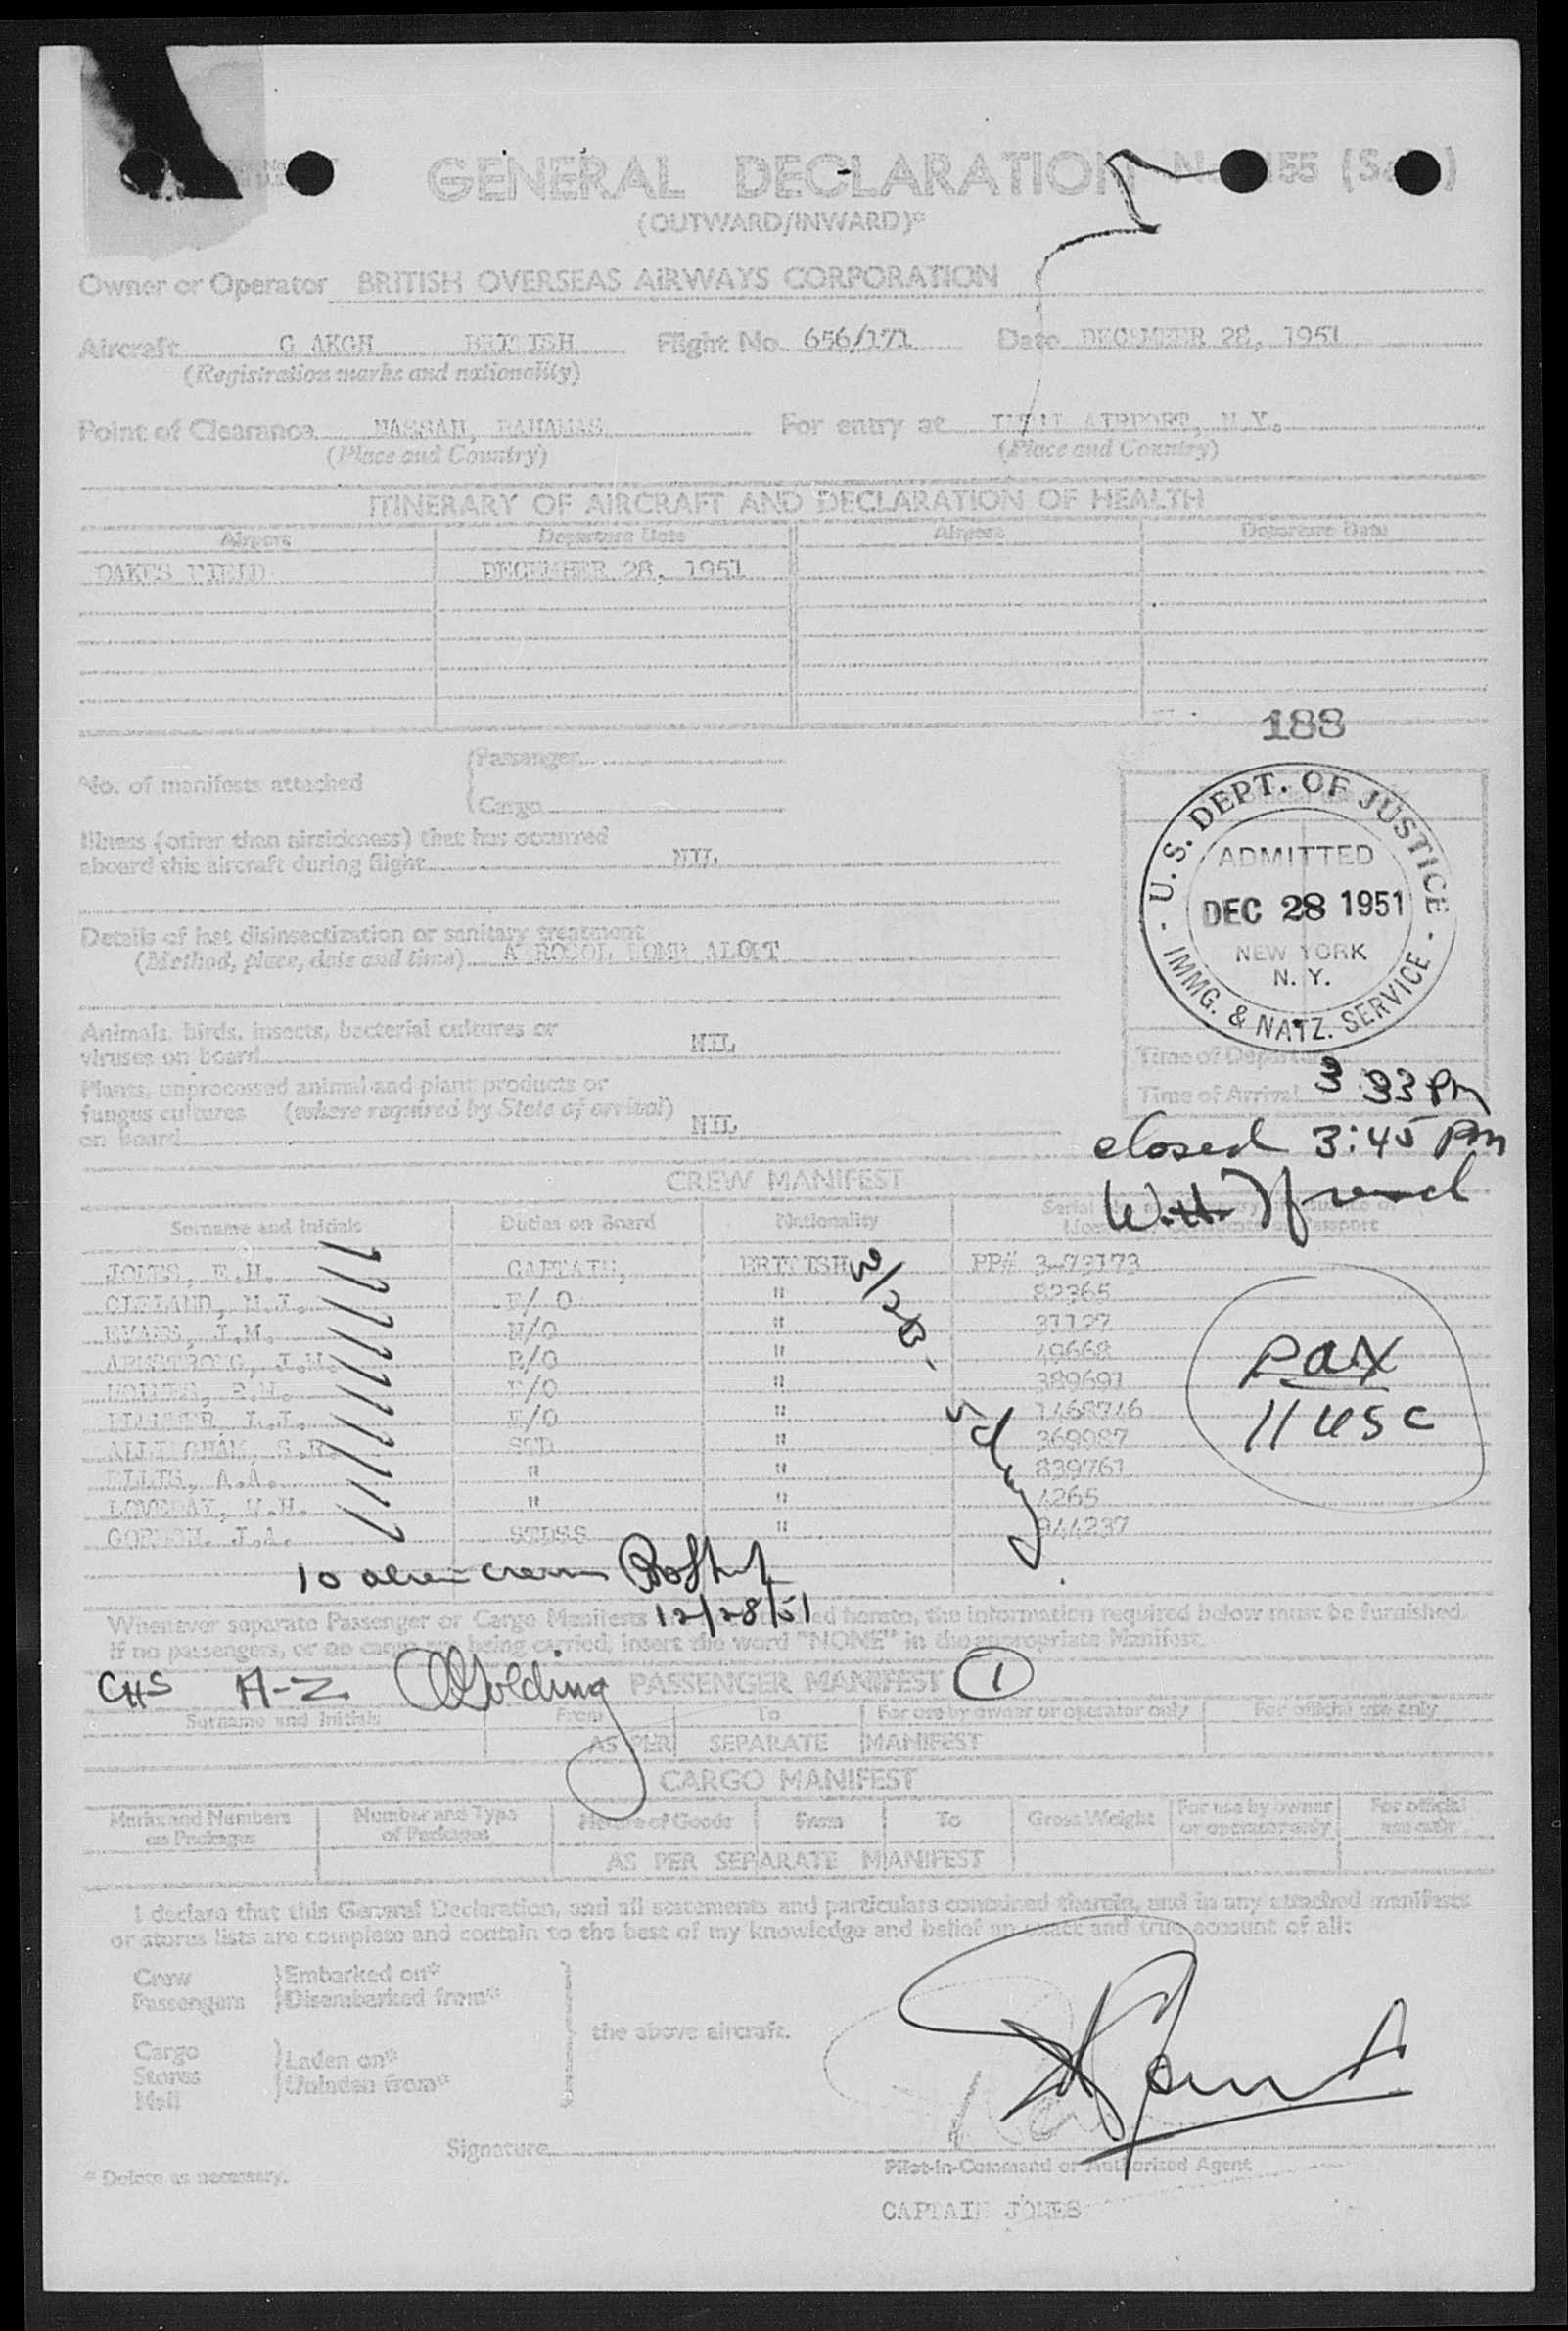 GENERAL DECLARATION
(OUTWARD/INWARD)*
Owner or Operator BRITISH OVERSEAS AIRWAYS CORPORATION
Aircraft BRITISH Flight No. 656/171 Date DECEMBER 28, 1951
(Registration marks and nationality)
Point of Clearance NASSAU, BAHAMAS For entry at AIRPORT, N.Y.
(Place and Country) (Place and Country)
ITINERARY OF AIRCRAFT AND DECLARATION OF HEALTH
Airport Departure Date Airport Departure Date
OAKES FIELD DECEMBER 28, 1951
188
No. of manifests attached
Passenger
Cargo
Illness (other than airsickness) that has occurred
aboard this aircraft during flight NIL
Details of last disinsectization or sanitary treatment
(Method, place, date and time) AEROSOL BOMB
Animals, birds, insects, bacterial cultures or
viruses on board NIL
Plants, unprocessed animal and plant products or
fungus cultures (where required by State of arrival)
on board NIL
U.S. DEPT. OF JUSTICE
ADMITTED
DEC 28 1951
NEW YORK
N. Y.
IMMG. & NATZ. SERVICE
Time of Departure
Time of Arrival 3 33 Pm
closed 3:45 Pm
CREW MANIFEST
Surname and Initials Duties on Board Nationality
JONES, E.H. CAPTAIN, BRITISH PP# 3-73173
CLELAND, F/O " 82365
EVANS, J.M. N/O " 31127
ARMSTRONG, R/O " 49668
E/O " 389691
E/O " 1468746
S.R. STD " 369987
ELLIS, A.A. " " 839761
LOVEDAY, " " 4265
GORDON, J.A. STDSS " 944237
Pax
11 USC
10 alien crew
12/28/51
Whenever separate Passenger or Cargo Manifests hereto, the information required below must be furnished.
If no passengers, or no cargo are being carried, insert the word "NONE" in the appropriate Manifest.
CHS A-Z Golding PASSENGER MANIFEST 1
Surname and Initials From To For use by owner or operator only For official use only
AS PER SEPARATE MANIFEST
CARGO MANIFEST
Marks and Numbers on Packages Number and Type of Packages Nature of Goods From To Gross Weight For use by owner or operator only For official use only
AS PER SEPARATE MANIFEST
I declare that this General Declaration, and all statements and particulars contained therein, and in any attached manifests
or stores lists are complete and contain to the best of my knowledge and belief an exact and true account of all:
Crew Embarked on*
Passengers Disembarked from*
the above aircraft.
Cargo Laden on*
Stores Unladen from*
Mail
Signature
Pilot-in-Command or Authorised Agent
* Delete as necessary.
CAPTAIN JONES